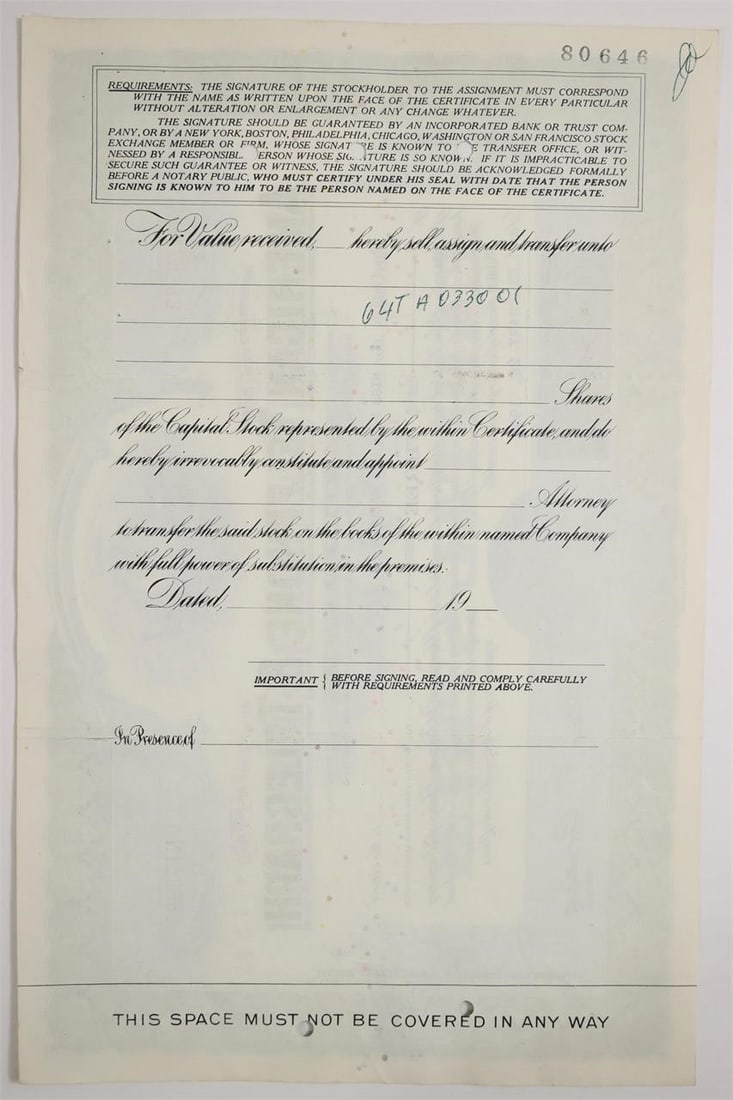 80646
REQUIREMENTS: THE SIGNATURE OF THE STOCKHOLDER TO THE ASSIGNMENT MUST CORRESPOND
WITH THE NAME AS WRITTEN UPON THE FACE OF THE CERTIFICATE IN EVERY PARTICULAR
WITHOUT ALTERATION OR ENLARGEMENT OR ANY CHANGE WHATEVER.
THE SIGNATURE SHOULD BE GUARANTEED BY AN INCORPORATED BANK OR TRUST COM-
PANY, OR BY A NEW YORK, BOSTON, PHILADELPHIA, CHICAGO, WASHINGTON OR SAN FRANCISCO STOCK
EXCHANGE MEMBER OR FIRM, WHOSE SIGNAT RE IS KNOWN TO E TRANSFER OFFICE, OR WIT-
NESSED BY A RESPONSIBL ERSON WHOSE SIG ATURE IS SO KNOWN. IF IT IS IMPRACTICABLE TO
SECURE SUCH GUARANTEE OR WITNESS, THE SIGNATURE SHOULD BE ACKNOWLEDGED FORMALLY
BEFORE A NOTARY PUBLIC, WHO MUST CERTIFY UNDER HIS SEAL WITH DATE THAT THE PERSON
SIGNING IS KNOWN TO HIM TO BE THE PERSON NAMED ON THE FACE OF THE CERTIFICATE.
For Value received, hereby sell, assign and transfer unto
64T A 033001
Shares
of the Capital Stock represented by the within Certificate, and do
hereby irrevocably constitute and appoint
Attorney
to transfer the said stock on the books of the within named Company
with full power of substitution in the premises.
Dated, 19
IMPORTANT { BEFORE SIGNING, READ AND COMPLY CAREFULLY
WITH REQUIREMENTS PRINTED ABOVE.
In Presence of
THIS SPACE MUST NOT BE COVERED IN ANY WAY